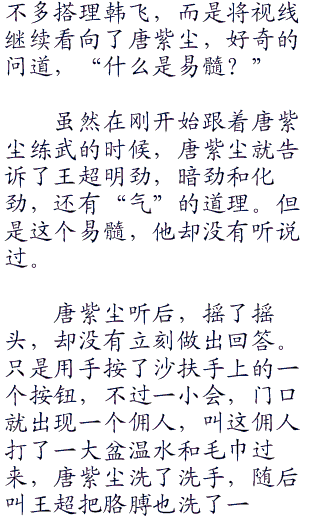 不多搭理韩飞，而是将视线
继续看向了唐紫尘，好奇的
问道，“什么是易髓？”
虽然在刚开始跟着唐紫
尘练武的时候，唐紫尘就告
诉了王超明劲，暗劲和化
劲，还有“气”的道理。但
是这个易髓，他却没有听说
过。
唐紫尘听后，摇了摇
头，却没有立刻做出回答。
只是用手按了沙扶手上的一
个按钮，不过一小会，门口
就出现一个佣人，叫这佣人
打了一大盆温水和毛巾过
来，唐紫尘洗了洗手，随后
叫王超把胳膊也洗了一